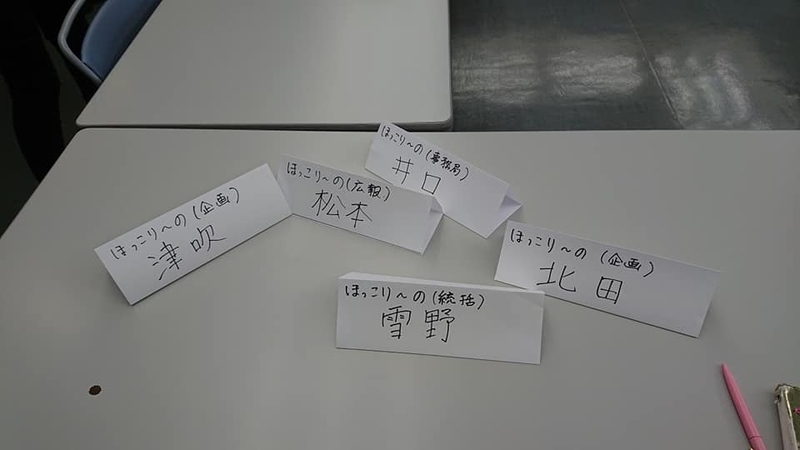 ほっこり〜の(企画)
津吹
ほっこり〜の(広報)
松本
ほっこり〜の(事務局)
井口
ほっこり〜の(統括)
雪野
ほっこり〜の(企画)
北田